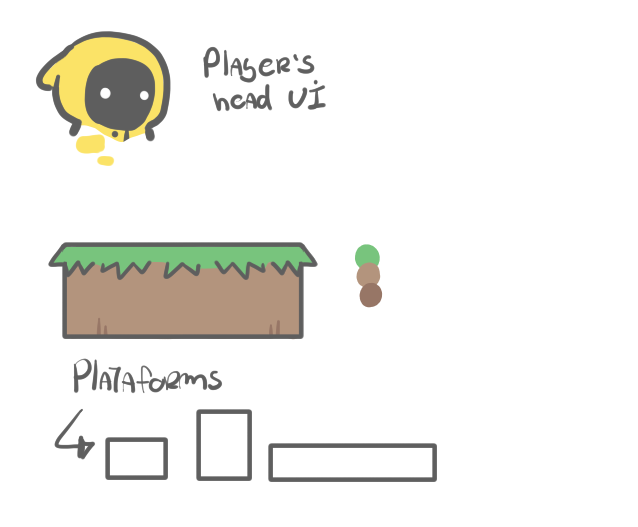 Player's
head UI
Plataforms